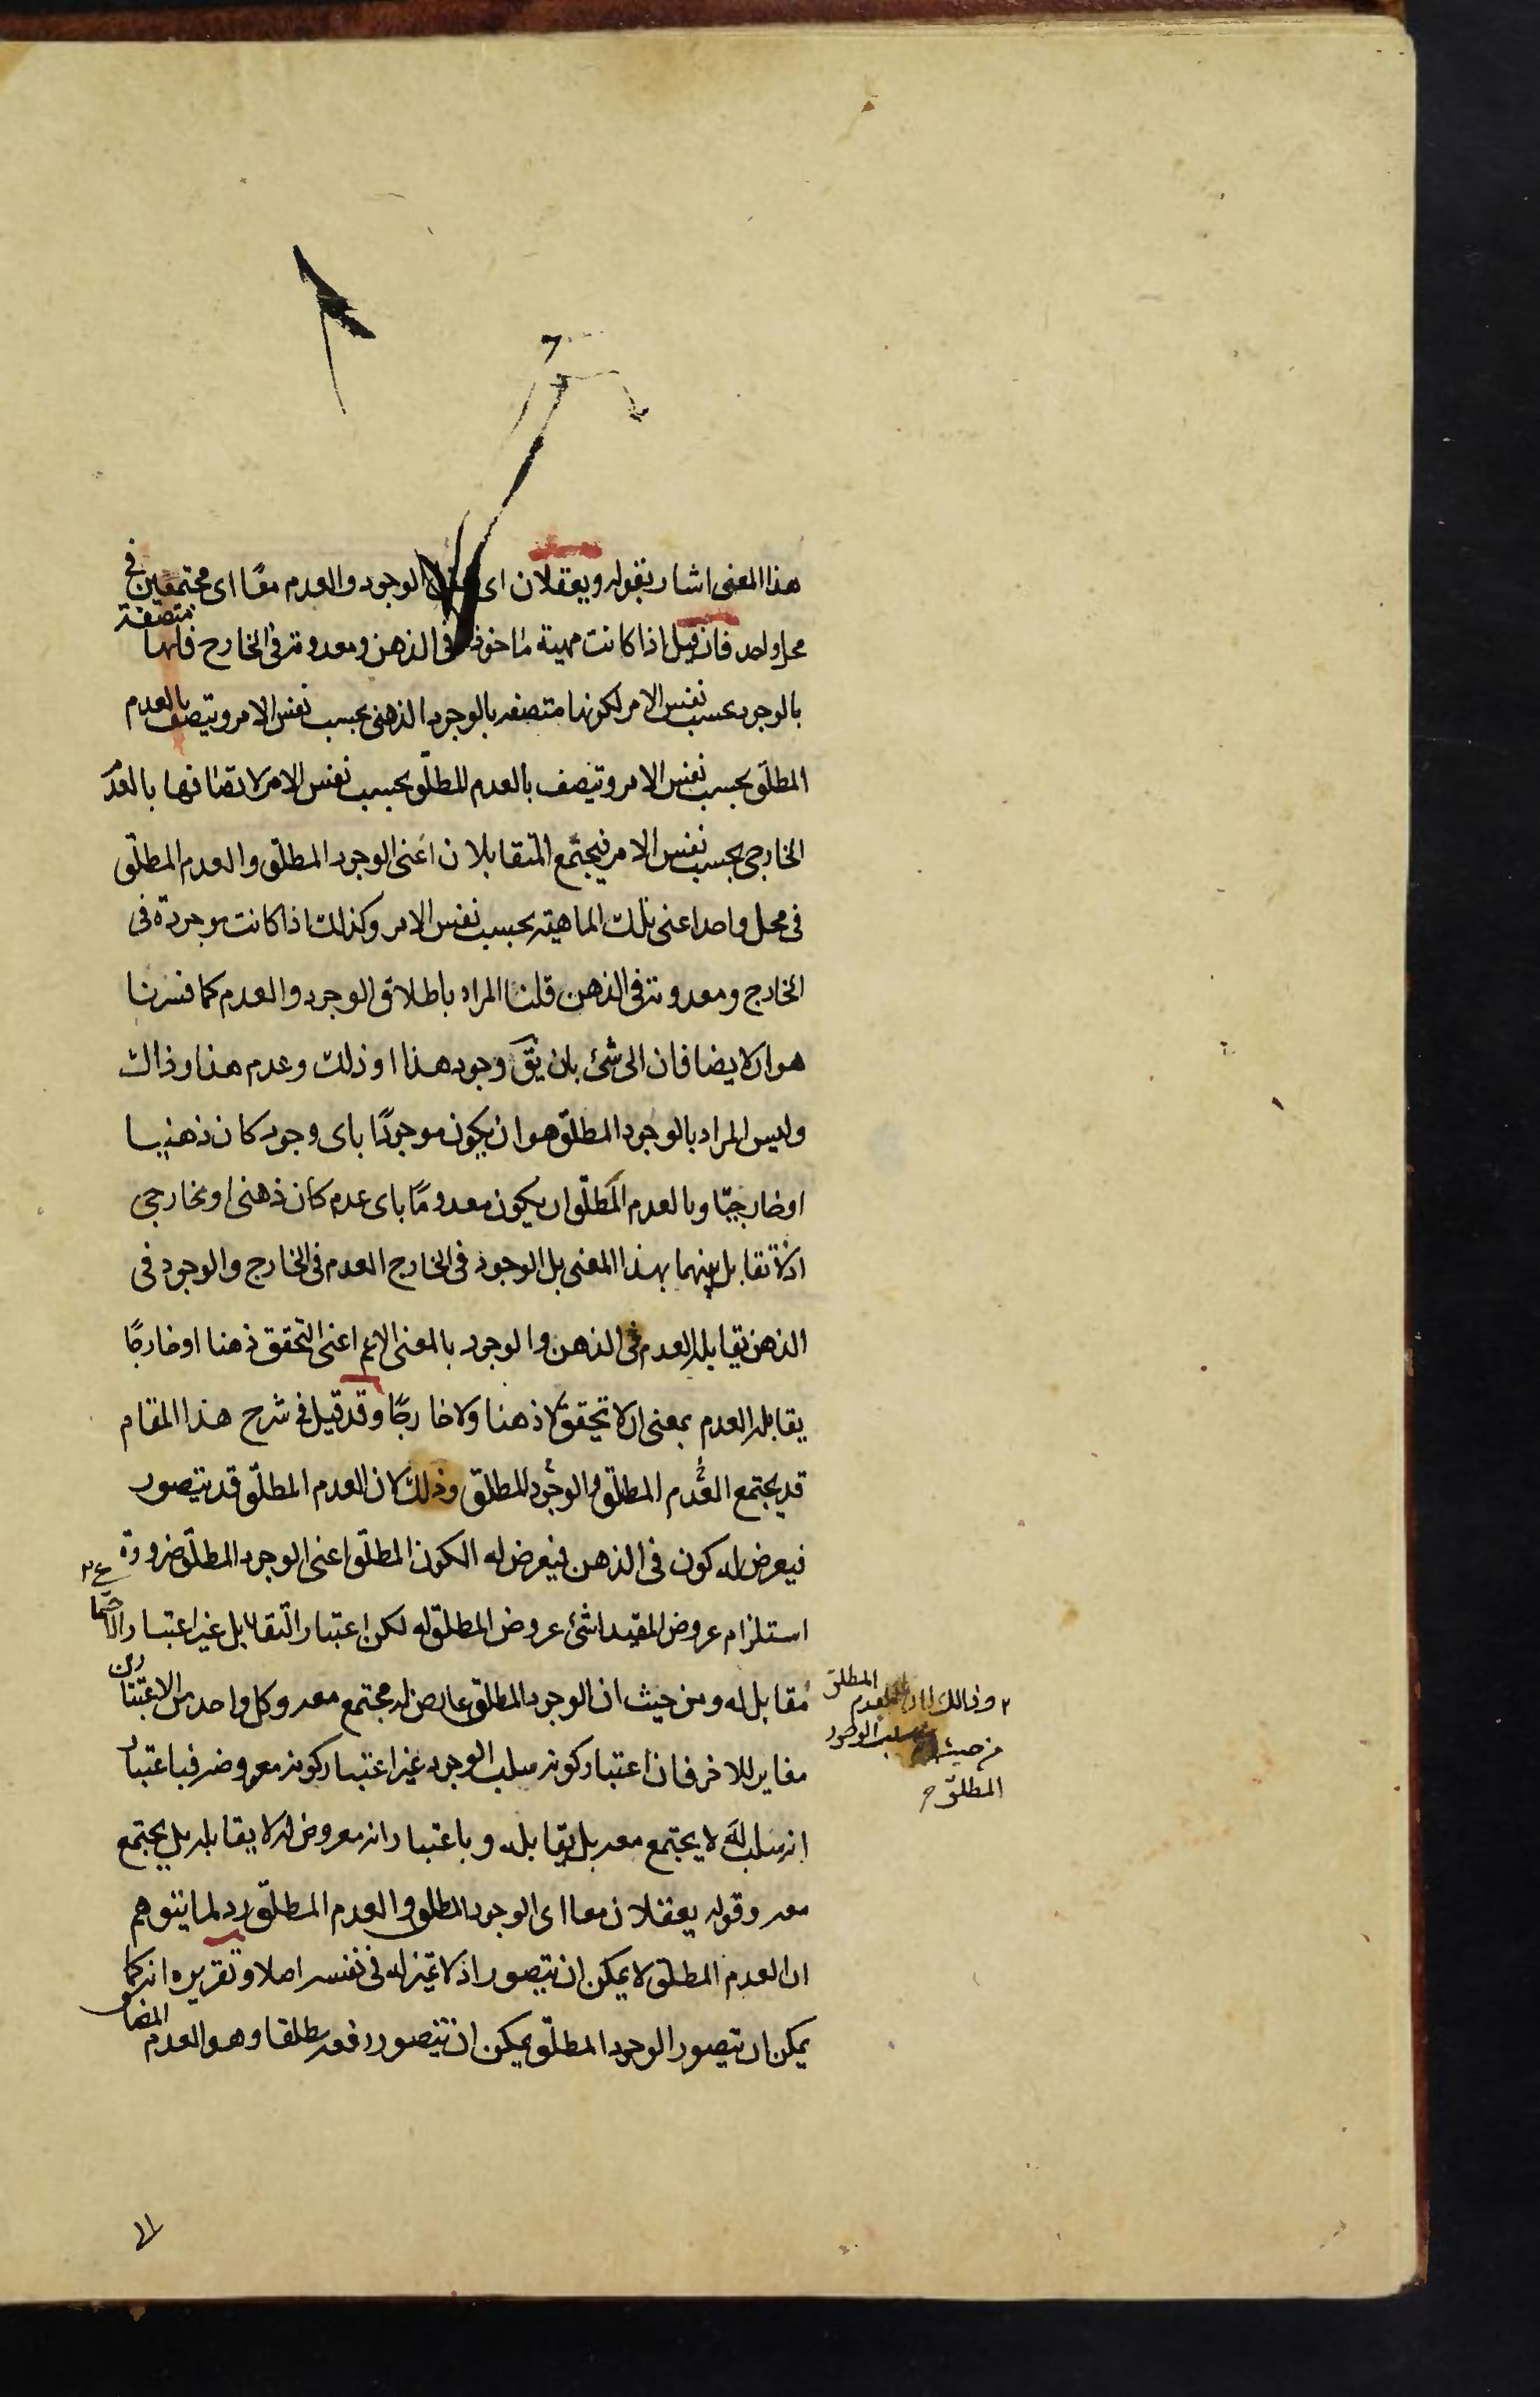 هذا المعنى اشار بقوله ويعقلان اى الوجود والعدم معًا اى مجتمعين فى
محل واحد فان قيل اذا كانت مهية ماخوذة فى الذهن ومعدومة فى الخارج فانها متصفة
بالوجود بحسب نفس الامر لكونها متصفه بالوجود الذهنى بحسب نفس الامر ويتصف بالعدم
المطلق بحسب نفس الامر وتيصف بالعدم المطلق بحسب نفس الامر لاتصافها بالعدم
الخارجى بحسب نفس الامر فيجتمع المتقابلان اعنى الوجود المطلق والعدم المطلق
فى محل واحد اعنى تلك الماهية بحسب نفس الامر وكذلك اذا كانت موجودة فى
الخارج ومعدومة فى الذهن قلنا المراد باطلاق الوجود والعدم كما فسرنا
هو ان لا يضافان الى شئ بان يق وجود هذا او ذلك وعدم هذا وذاك
وليس المراد بالوجود المطلق هو ان يكون موجودًا باى وجود كان ذهنيا
او خارجيّا وبالعدم المطلق ان يكون معدومًا باى عدم كان ذهنى او خارجى
اذ لا تقابل بينهما بهذا المعنى بل الوجود فى الخارج العدم فى الخارج والوجود فى
الذهن يقابله العدم فى الذهن والوجود بالمعنى الاعم اعنى التحقق ذهنا او خارجًا
يقابله العدم بمعنى ان لا تحقق لا ذهنا ولا خارجًا وقد قيل فى شرح هذا المقام
قد يجتمع العدم المطلق والوجود المطلق وذلك لان العدم المطلق قد يتصور
فيعرض له كون فى الذهن فيعرض له الكون المطلق اعنى الوجود المطلق ضرورة
استلزام عروض المقيد لشئ عروض المطلق له لكن اعتبار التقابل غير اعتبار الاجتما ع ٢
مقابل له ومن حيث ان الوجود المطلق عارض له مجتمع معه وكل واحد من الاعتبارين
مغاير للاخر فان اعتبار كونه سلب الوجود غير اعتبار كونه معروضه فباعتبار
انه سلب له لا يجتمع معه بل يقابله وباعتبار انه معروض له لا يقابله بل يجتمع
معه وقوله يعقلان معا اى الوجود المطلق والعدم المطلق رد لما يتوهم
ان العدم المطلق لا يمكن ان يتصور اذ لا تميز له فى نفسه اصلا وتقريره انه كما
يمكن ان يتصور الوجود المطلق يمكن ان يتصور رفعه مطلقا وهو العدم المضا
٢ وذالك لان العدم المطلق
من حيث سلب الوجود
المطلق